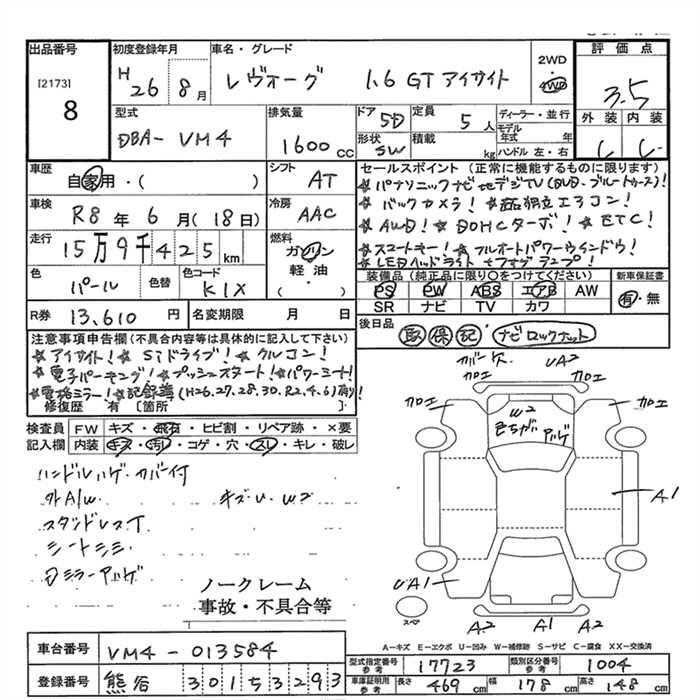 出品番号 初度登録年月 車名・グレード 2WD 4WD 評価点
[2173]
8
H26 8月 レヴォーグ 1.6 GT アイサイト 3.5
外装 内装
C C
型式 排気量 ドア 5D 定員 5人 ディーラー・並行
DBA-VM4 1600cc 形状 SW 積載 kg モデル年式 年
ハンドル 左・右
車歴 自家用・( ) シフト AT
車検 R8年6月(18日) 冷房 AAC
走行 15万9千425km 燃料 ガソリン 軽油・( )
色 パール 色替 色コード K1X
R券 13,610円 名変期限 月 日
セールスポイント (正常に機能するものに限ります)
★パナソニックナビ 地デジTV(DVD・ブルートゥース)!
★バックカメラ!★左右独立エアコン!
★AWD!★DOHCターボ!★ETC!
★スマートキー!★フルオートパワーウインドウ!
★LEDヘッドライト
装備品 (純正品に限り○をつけてください) 新車保証書
PS PW ABS エアB AW 有・無
SR ナビ TV カワ
後日品 取 保 記・ナビロックナット
注意事項申告欄(不具合内容等は具体的に記入して下さい)
★アイサイト!★SIドライブ!★クルコン!
★電子パーキング!★プッシュスタート!★パワーシート!
★電格ミラー!★記録簿(H26.27.28.30.R2.4.6)有り!
修復歴 有 [箇所 ]
検査員 FW キズ・飛石・ヒビ割・リペア跡・×要
記入欄 内装 キズ・汚れ・コゲ・穴・スレ・キレ・破レ
ハンドルハゲ カバー付
外A/W キズU W2
スタッドレスT
シートシミ
Dミラーアッゲ
ノークレーム
事故・不具合等
UA2
加工 加工
加工 加工
W2
色ちがい
A1
UA1
スペア
A2 A1 A2
A-キズ E-エクボ U-凹み W-補修跡 S-サビ C-腐食 XX-交換済
車台番号 VM4-013584
登録番号 熊谷 301 5 3293
型式指定番号 参考 17723 類別区分番号 参考 1004
車庫証明用 参考 長さ 469cm 幅 178cm 高さ 148cm